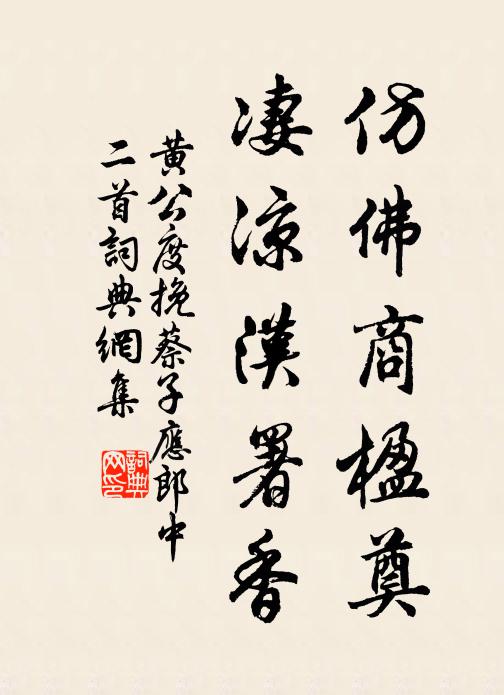 仿佛商楹奠
凄涼漢署香
黃公度挽蔡子應郎中
二首詞典網集
詞典
网印